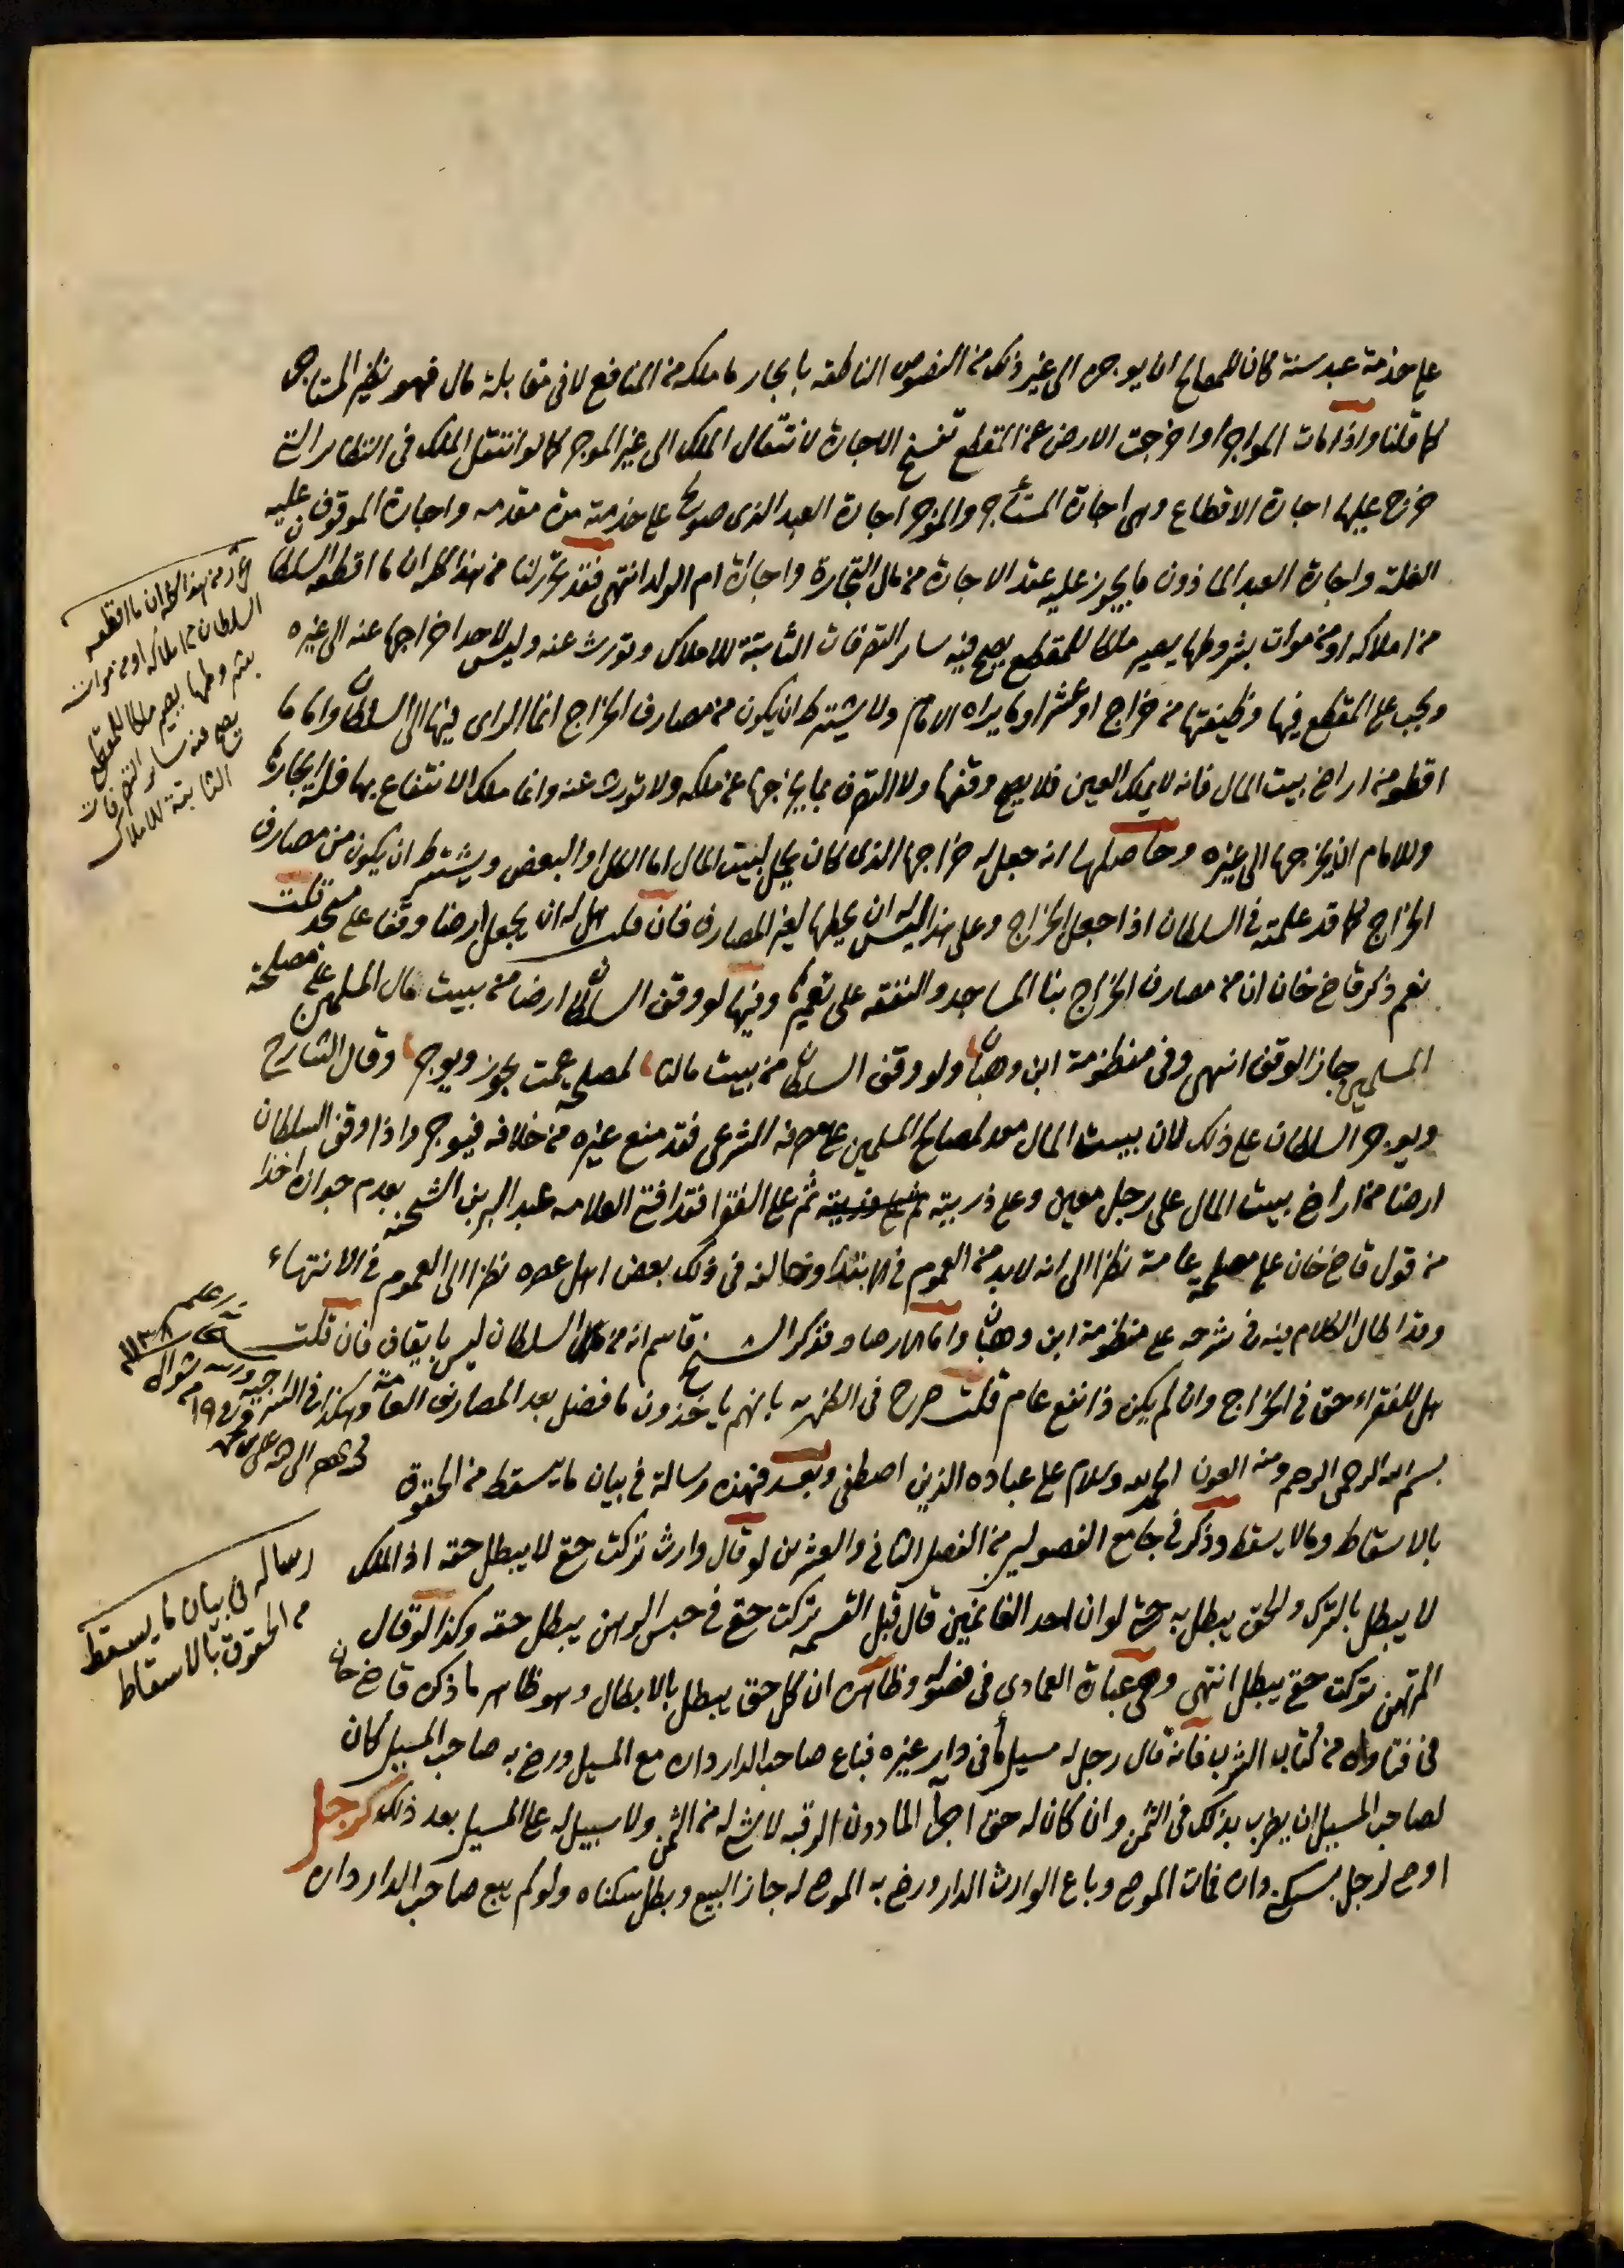 على خدمة عبد سنة كان للمصالح ان يوجره الى غير ذلك من النصوص الناطقه بايجار ما ملكه من المنافع لا في مقابلة مال فهو نظير المستاجر
كما قلنا واذا مات المواجر او اخرجت الارض عن المقطع تفسخ الاجارة لانتقال الملك الى غير الموجر كما لو انتقل الملك في النظاير التي
خرج عليها اجارة الاقطاع وهى اجارة المستأجر والموجر اجارة العبد الذى صولح على خدمته مدة مقدمه واجارة الموقوف عليه
الغلة واجارة العبد الماذون ما يجوز عليه عقد الاجارة من مال التجارة واجارة ام الولد انتهى فقد تحرر لنا من هذا كله ان ما اقطعه السلطان
من املاكه او من موات بشروطها يصير ملكا للمقطع يصح فيه ساير التصرفات الثابتة للاملاك وتورث عنه وليس لاحد اخراجها عنه الى غيره
ويجب على المقطع فيها وظيفتها من خراج او عشر او ما يراه الامام ولا يشترط ان يكون من مصارف الخراج انما الراى فيها الى السلطان واما ما
اقطعه من اراضى بيت المال فانه لا يملك العين فلا يصح وقفها ولا التصرف بما يخرجها عن ملكه ولا تورث عنه وانما ملك الانتفاع بها فله ايجارها
وللامام ان يخرجها الى غيره وحاصلها انه جعل له خراجها الذى كان يحمل لبيت المال اما الكل او البعض ويشترط ان يكون من مصارف
الخراج كما قد علمته في السلطان اذا جعل الخراج وعلى هذا ليس له ان يحيلها لغير المصارف فان قلت هل له ان يجعل ارضا وقفا على مسجد قلت
نعم ذكر قاضى خان ان من مصارف الخراج بنا المساجد والنفقه على تعميرها وفيها لو وقف السلطان ارضا من بيت مال المسلمين على مصلحة
المسلمين جاز الوقف انتهى وفي منظومة ابن وهبان ولو وقف السلطان من بيت مالنا لمصلحة عمت يجوز ويوجر وقال الشارح
ويوجر السلطان على ذلك لان بيت المال معد لمصالح المسلمين على مصرفه الشرعى فقد منع غيره من خلافه فيوجر واذا وقف السلطان
ارضا من اراضى بيت المال على رجل معين وعلى ذريته ثم على ذريته ثم على الفقرا فقد افتى العلامه عبد البر بن الشحنه بعدم جوازه اخذا
من قول قاضى خان على مصلحة عامة نظرا الى انه لابد من العموم في الابتدا وخالفه في ذلك بعض اهل عصره نظرا الى العموم في الانتهاء
وقد اطال الكلام فيه في شرحه على منظومة ابن وهبان واما الارصاد فذكر الشيخ قاسم انه من السلطان ليس بايقاف فان قلت
هل للفقراء حق في الخراج وان لم يكن ذا نفع عام قلت صرح في الظهريه بانهم ياخذون ما فضل بعد المصارف العامة وهكذا في السراجيه
بسم الله الرحمن الرحيم ومنه العون الحمد لله وسلام على عباده الذين اصطفى وبعد فهذه رسالة في بيان ما يسقط من الحقوق
بالاسقاط وما لا يسقط وذكر في جامع الفصولين من الفصل الثانى والعشرين لو قال وارث تركت حقى لا يبطل حقه اذ الملك
لا يبطل بالترك والحق يبطل به حتى لو ان احد الغانمين قال قبل القسمه تركت حقى في حبس الرهن يبطل حقه وكذا لو قال
المرتهن تركت حقى يبطل انتهى وهى عبارة العمادى في فصوله وظاهره ان كل حق يبطل بالابطال وهو ظاهر ما ذكره قاضى خان
في فتاواه من كتاب الشرب فانه قال رجل له مسيل ماء في دار غيره فباع صاحب الدار داره مع المسيل ورضى به صاحب المسيل كان
لصاحب المسيل ان يضرب بذلك في الثمن وان كان له حق اجرا الماء دون الرقبه لا شئ له من الثمن ولا سبيل له على المسيل بعد ذلك كرجل
اوصى لرجل بسكنى داره فمات الموصى وباع الوارث الدار ورضى به الموصى له جاز البيع وبطل سكناه ولو لم يبع صاحب الدار داره
تحرر من هذا كله ان ما اقطعه
السلطان من املاكه او من موات
بشروطها يصير ملكا للمقطع
يصح منه ساير التصرفات
الثابتة للاملاك
رساله في بيان ما يسقط
من الحقوق بالاسقاط